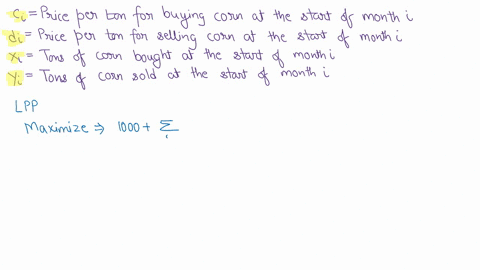 ci = Price per ton for buying corn at the start of month i
di = Price per ton for selling corn at the start of month i
xi = Tons of corn bought at the start of month i
yi = Tons of corn sold at the start of month i
LPP
Maximize ⇒ 1000 + Σ